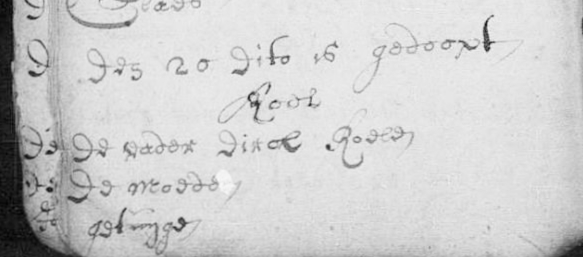 Claes
den 20 dito is gedoopt
Roel
de vader dirck Roelen
de moeder
getuyge